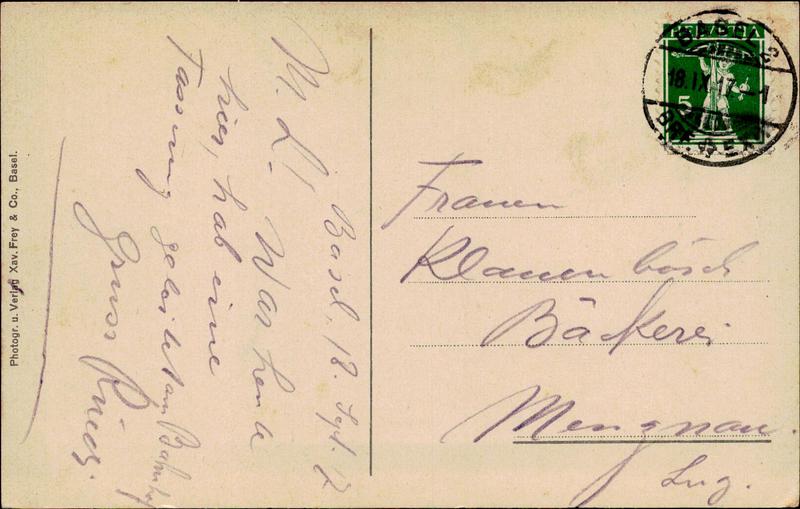 Basel, 18. Sept. 17
M. L! War heute
hier, hab eine
Fassung geleistet am Bahnhof
Gruss
Photogr. u. Verlag Xav. Frey & Co., Basel.
BASEL 2
18.IX.17.-1
BRF. EXP.
HELVETIA
5
Frauen
Klauenbösch
Bäckerei
Mengnau.
Luz.